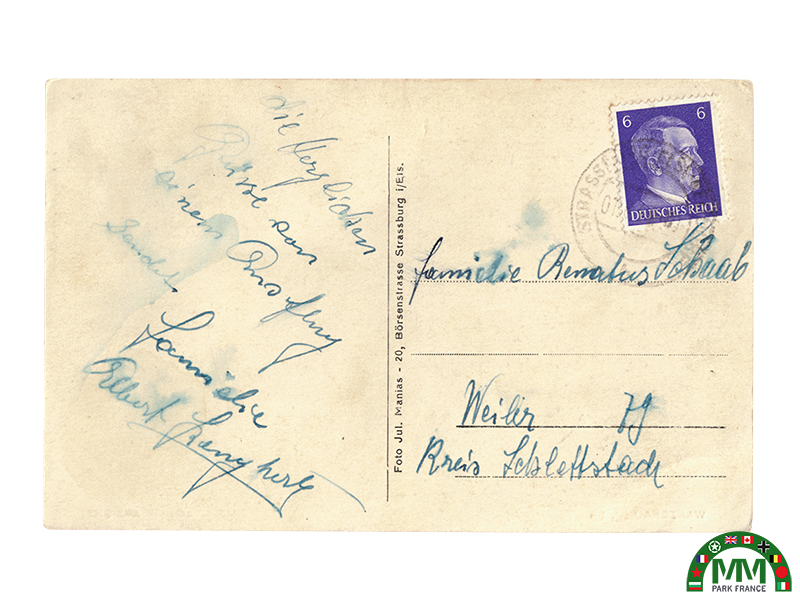 die herzlichen
Grüsse von
einem Ausflug
sendet
Familie
Albert
6 6
DEUTSCHES REICH
STRASS
Foto Jul. Manias - 20, Börsenstrasse Strassburg i/Els.
Familie Renatus Schaab
Weiler 79
Kreis Schlettstadt
MM
PARK FRANCE